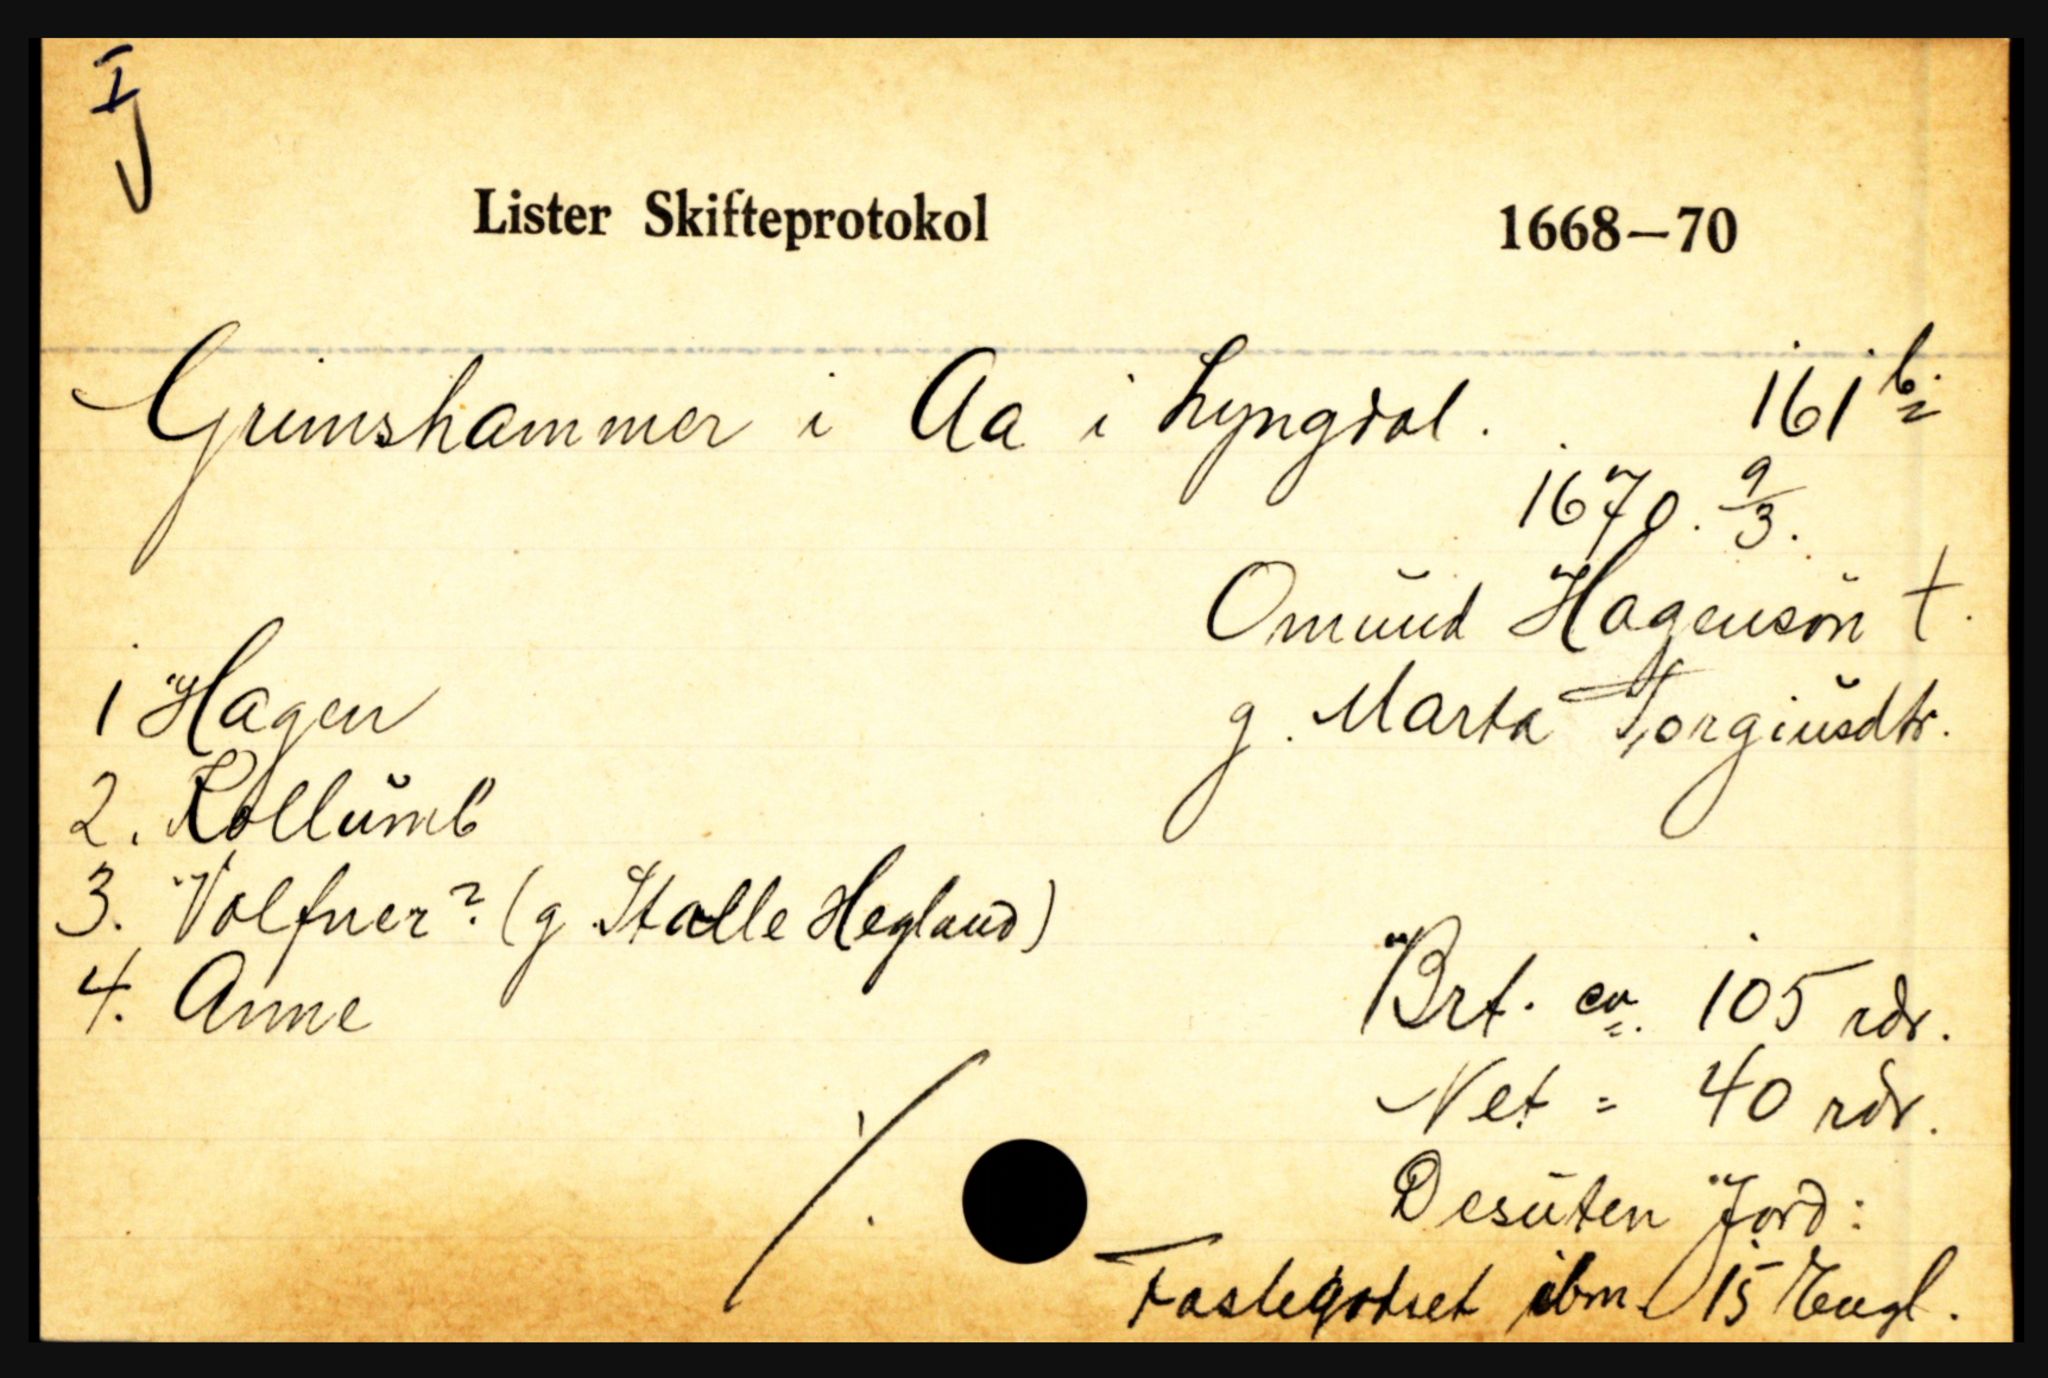 I
J
Lister Skifteprotokol 1668—70
Grimshammer i Aa i Lyngdal. 161 b.
1670. 9/3.
Omund Hagensön †.
g. Marta Torgiusdtr.
1 Hagen
2. Kollumb
3. Volfner? (g. Stalle Hegland)
4. Anne
Brt. ca. 105 rdr.
Net = 40 rdr.
Desuten Jord:
Fastegodset ibm 15 Engl.
./.